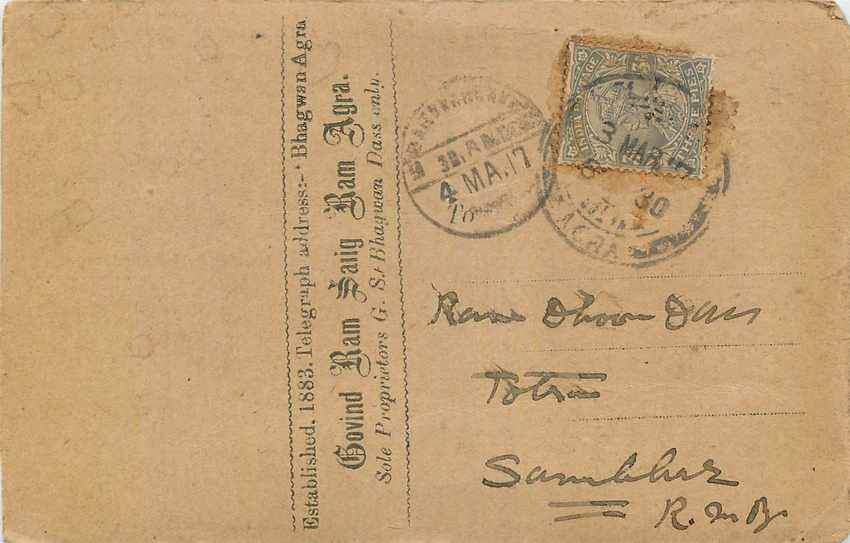 Established, 1883. Telegraph address:- 'Bhagwan Agra
Govind Ram Salig Ram Agra.
Sole Proprietors G. S. Bhagwan Dass only.
4 MA.17
INDIA POSTAGE
THREE PIES
3 MAR 17
30
AGRA
Ram Dass
Sambhar
R.M.Ry